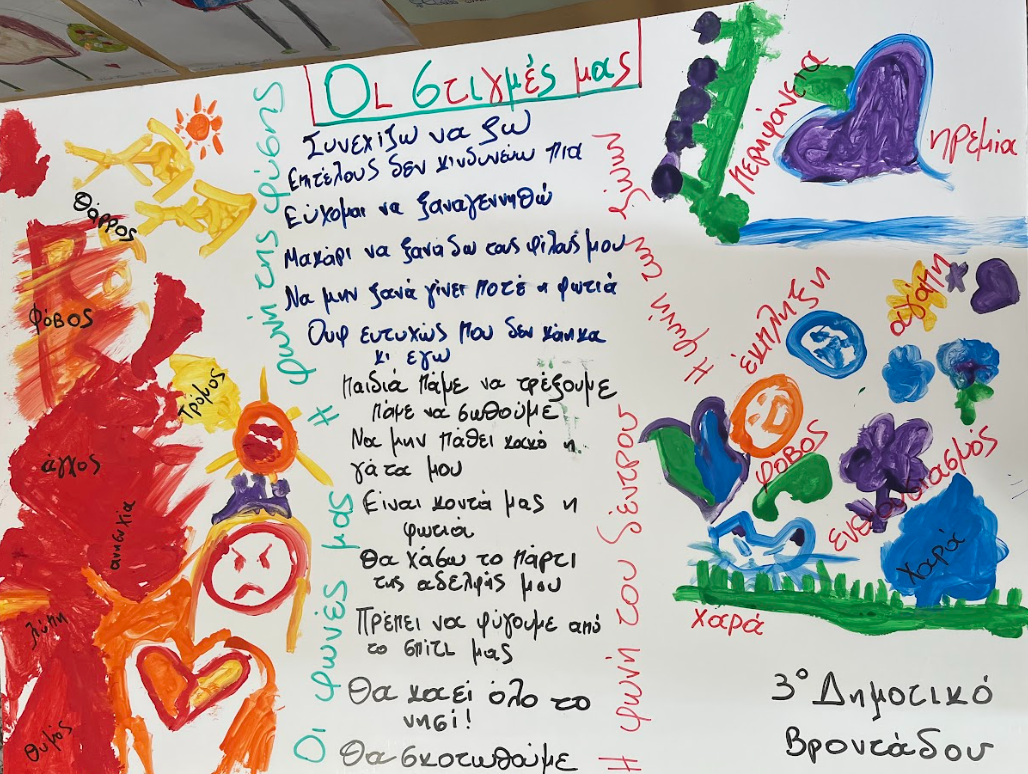 Οι στιγμές μας
Συνεχίζω να ζω
Επιτέλους δεν κινδυνεύω πια
Εύχομαι να ξαναγεννηθώ
Μακάρι να ξανά δω τους φίλους μου
Να μην ξανά γίνει ποτέ η φωτιά
Ουφ ευτυχώς που δεν κάηκα
κι εγω
Παιδιά πάμε να τρέξουμε
πάμε να σωθούμε
Να μην πάθει κακό η
γάτα μου
Είναι κοντά μας η
φωτιά
Θα χάσω το πάρτι
της αδελφής μου
Πρέπει να φύγουμε από
το σπίτι μας
Θα καεί όλο το
νησί!
Θα σκοτωθούμε
Οι φωνές μας
Η φωνή της φύσης
Η φωνή του δέντρου
Η φωνή των ζώων
θάρρος
φόβος
τρόμος
άγχος
ανησυχία
λύπη
θυμός
περηφάνεια
ηρεμία
αγάπη
έκπληξη
φόβος
ενθουσιασμός
χαρά
χαρά
3° Δημοτικό
Βροντάδου